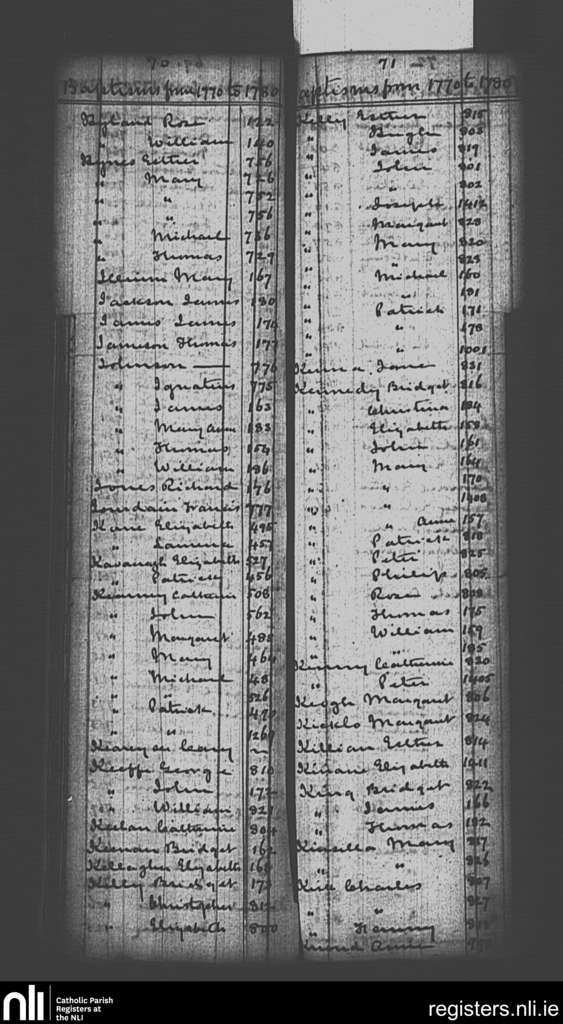 70
Baptisms from 1770 to 1780
Hyland Rose 122
" William 140
Hynes Esther 756
" Mary 726
" " 752
" " 756
" Michael 736
" Thomas 729
Mary 167
Jackson James 180
James James
Jameson Thomas 177
Johnson — 776
" Ignatius 775
" James 163
" Mary Ann 183
" Thomas 154
" William 186
Jones Richard 176
Jourdain Francis 777
Kane Elizabeth 495
" 457
Kavanagh Elizabeth 527
" Patrick 456
Kearney Catherine 508
" John 562
" Margaret 485
" Mary 464
" Michael 48
" " 526
" Patrick 470
" " 1269
Keary or Carey
Keeffe George 810
" John 172
" William 821
Catherine 804
Keenan Bridget 162
Kelleghan Elizabeth 166
Kelly Bridget 173
" Christopher 812
" Elizabeth 800
71
Baptisms from 1770 to 1780
Kelly Esther 815
" 803
" James 819
" John 801
" " 802
" Joseph 1412
" Margaret 828
" Mary 820
" " 828
" Michael 160
" " 181
" Patrick 171
" " 178
" " 1001
Kenna Jane 831
Kennedy Bridget 816
" Christina 184
" Elizabeth 158
" John 161
" Mary 164
" " 170
" " 1408
" " Anne 157
" Patrick 818
" Peter 825
" Philip 805
" Rose 808
" Thomas 175
" William 159
" " 185
Kenny Catherine 830
" Peter 1405
Keogh Margaret 806
Margaret 824
Killian Esther 814
Kinane Elizabeth 1411
King Bridget 822
" James 166
" Thomas 182
Kinsella Mary 817
" " 826
Kirk Charles 807
" " 827
" Henry
nli
Catholic Parish
Registers at
the NLI
registers.nli.ie